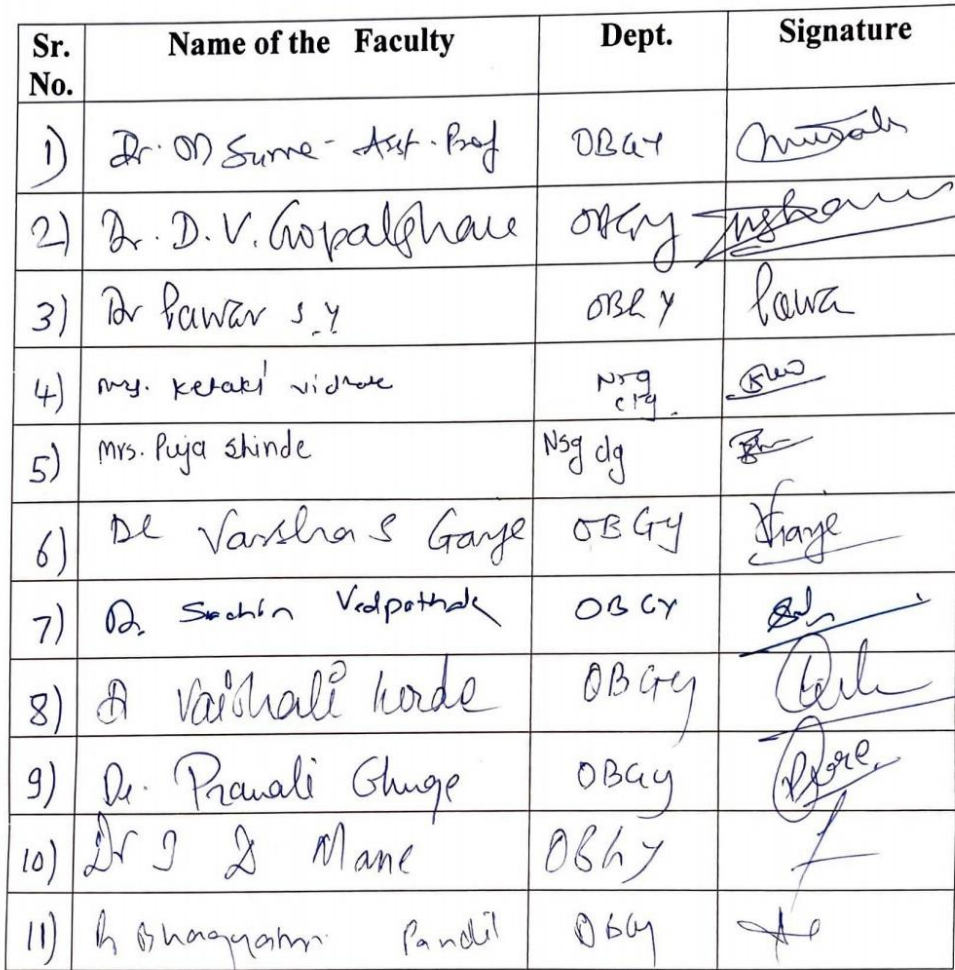 Sr. No. Name of the Faculty Dept. Signature
1) Dr. Surve - Asst. Prof OBGY
2) Dr. D. V. Gopalghare OBGY
3) Dr Pawar S.Y OBGY Pawar
4) Mrs. Ketaki Nsg clg.
5) Mrs. Puja Shinde Nsg clg
6) Dr Varsha S Garje OBGY
7) Dr. Sachin Vedpathak OBGY
8) Dr Vaishali Korde OBGY
9) Dr. Pranali Ghuge OBGY
10) Dr I D Mane OBGY
11) Dr Bhagyashri Pandit OBGY